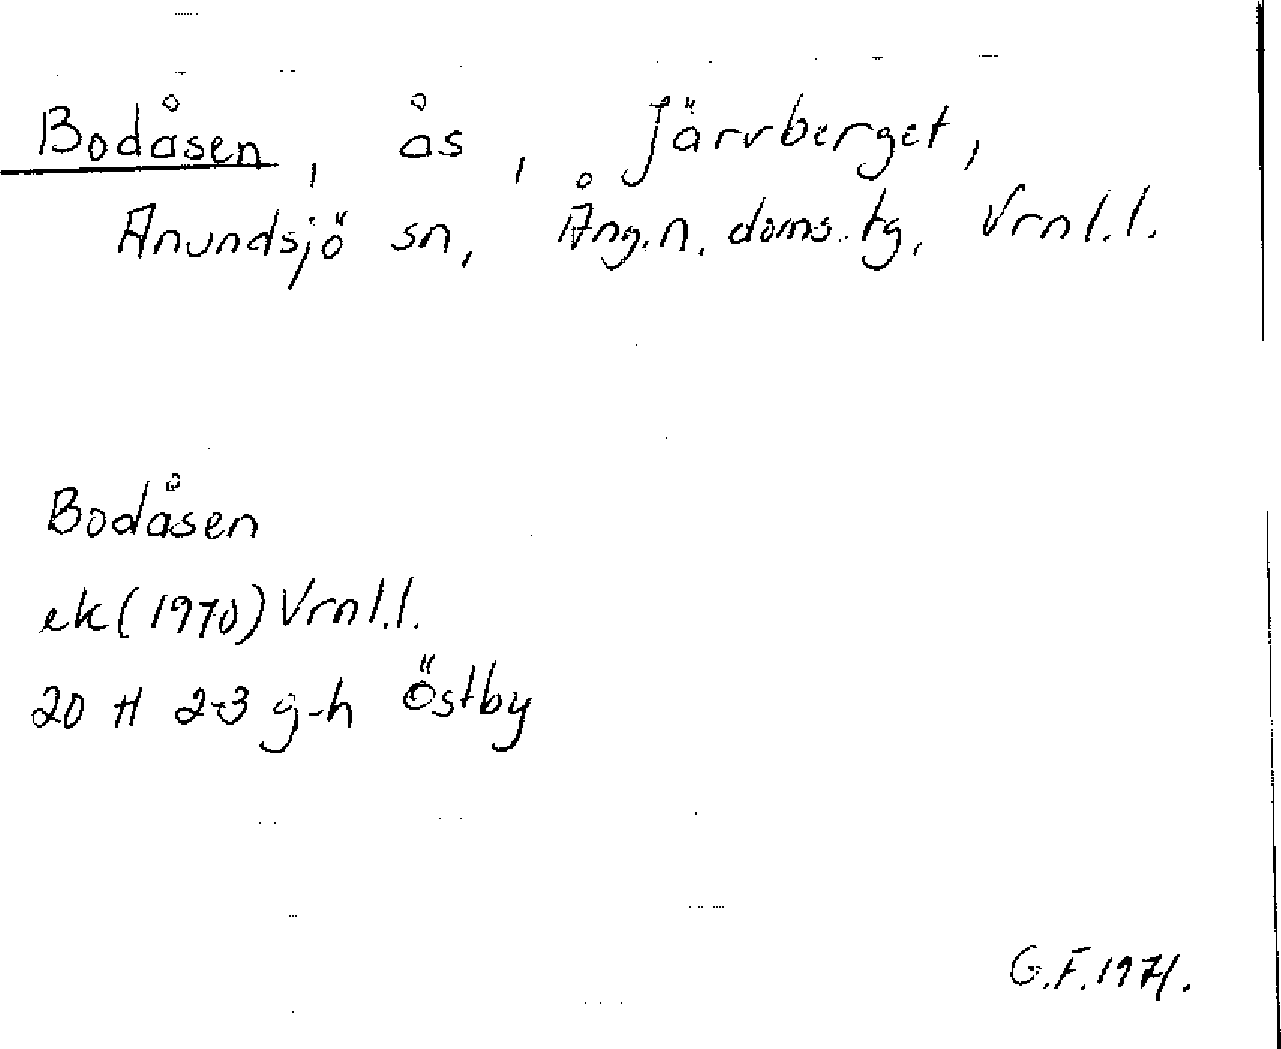 Bodåsen, ås, Järvberget,
Anundsjö sn, Ång.n. doms.tg, Vrnl.l.
Bodåsen
ek (1970) Vrnl.l.
20 H 2-3 g-h Östby
G.F. 1971.